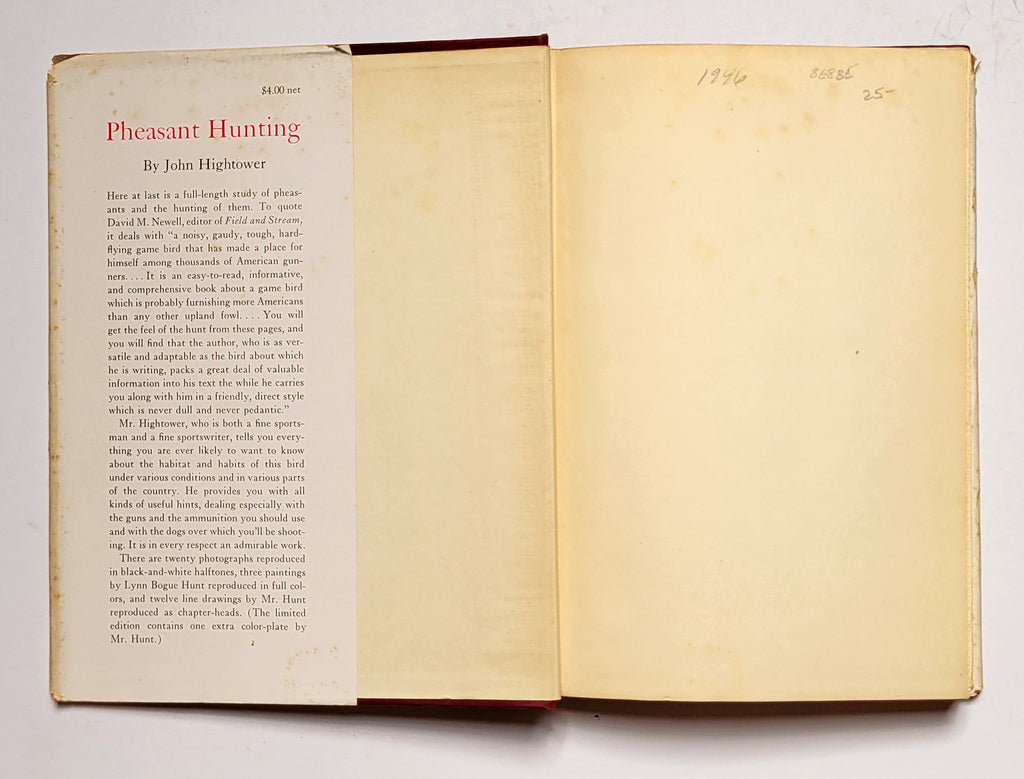 $4.00 net
Pheasant Hunting
By John Hightower
Here at last is a full-length study of pheas-
ants and the hunting of them. To quote
David M. Newell, editor of Field and Stream,
it deals with "a noisy, gaudy, tough, hard-
flying game bird that has made a place for
himself among thousands of American gun-
ners. . . . It is an easy-to-read, informative,
and comprehensive book about a game bird
which is probably furnishing more Americans
than any other upland fowl. . . . You will
get the feel of the hunt from these pages, and
you will find that the author, who is as ver-
satile and adaptable as the bird about which
he is writing, packs a great deal of valuable
information into his text the while he carries
you along with him in a friendly, direct style
which is never dull and never pedantic."
Mr. Hightower, who is both a fine sports-
man and a fine sportswriter, tells you every-
thing you are ever likely to want to know
about the habitat and habits of this bird
under various conditions and in various parts
of the country. He provides you with all
kinds of useful hints, dealing especially with
the guns and the ammunition you should use
and with the dogs over which you'll be shoot-
ing. It is in every respect an admirable work.
There are twenty photographs reproduced
in black-and-white halftones, three paintings
by Lynn Bogue Hunt reproduced in full col-
ors, and twelve line drawings by Mr. Hunt
reproduced as chapter-heads. (The limited
edition contains one extra color-plate by
Mr. Hunt.)
1946
25-